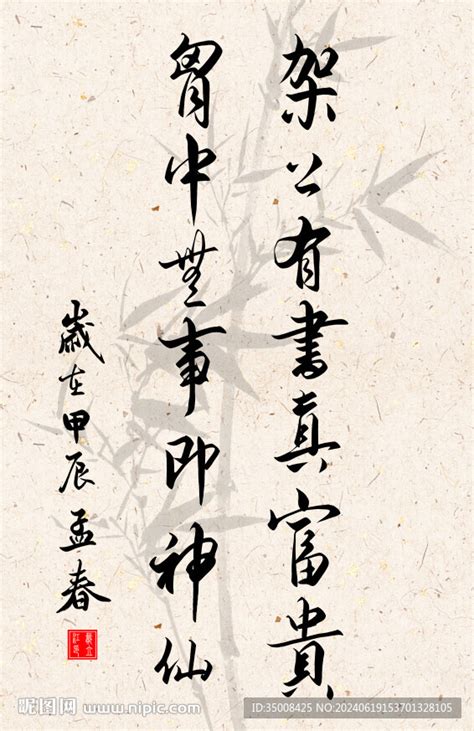 架上有書真富貴
胷中無事即神仙
歲在甲辰孟春
昵图网 www.nipic.com
ID:35008425 NO:20240619153701328105